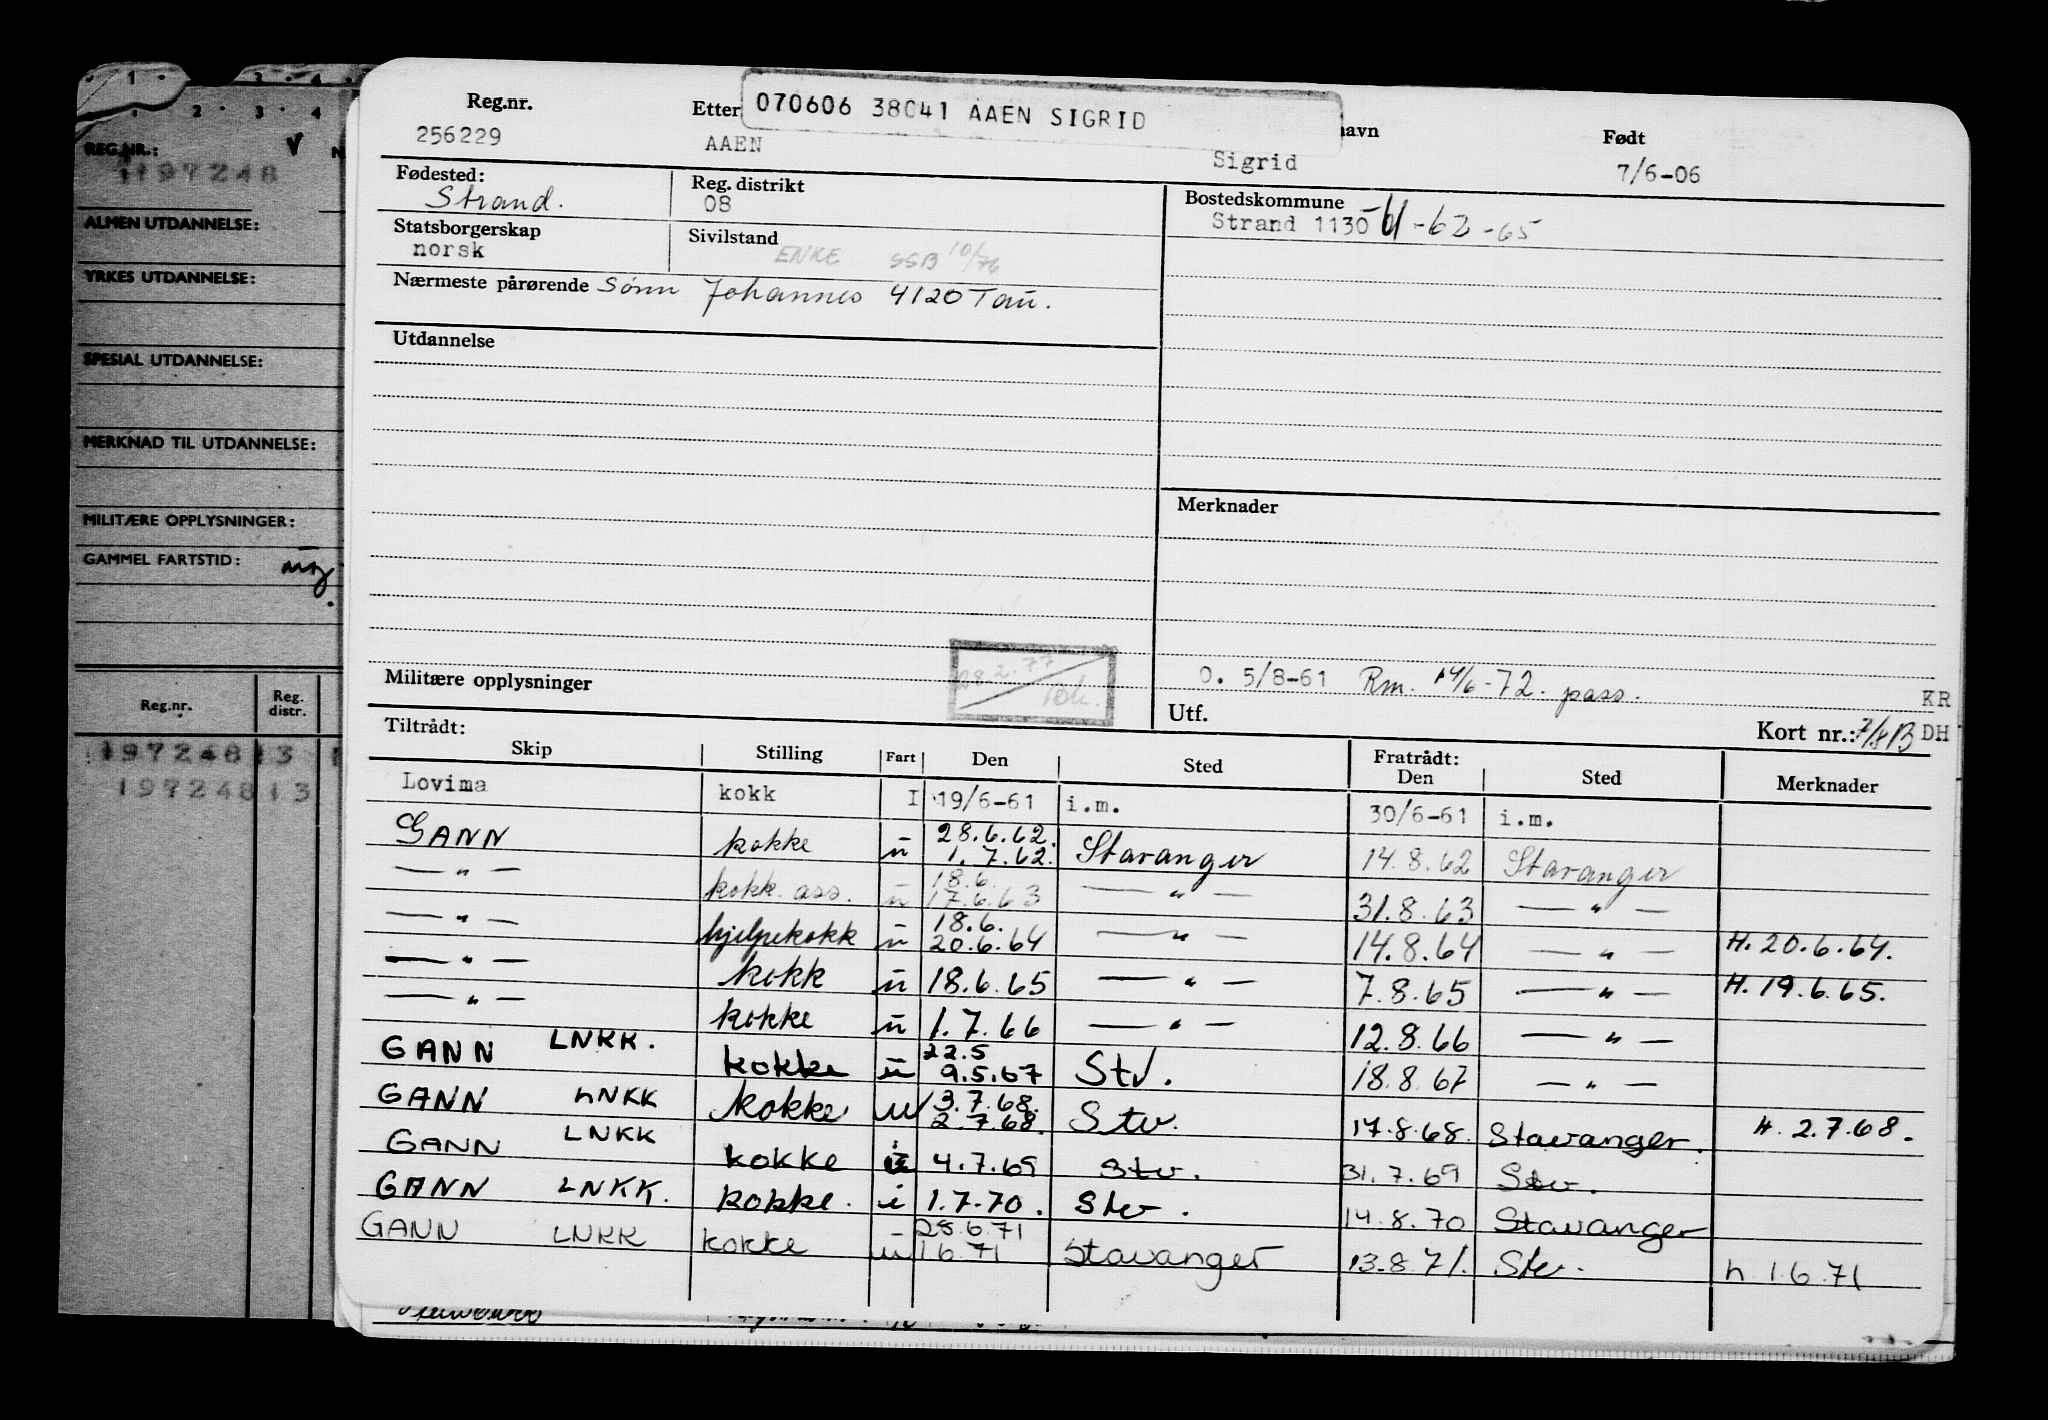 070606 38041 AAEN SIGRID
Reg.nr. Etter navn Født
256229 AAEN Sigrid 7/6-06
Fødested: Strand. Reg. distrikt 08 Bostedskommune Strand 1130 -62 -65
Statsborgerskap norsk Sivilstand ENKE SSB 10/76
Nærmeste pårørende Sønn Johannes 4120 Tau.
Utdannelse
Merknader
Militære opplysninger 28.2.77
O. 5/8-61 Rm. 14/6-72. pass. KR
Utf. Kort nr.: DH
Tiltrådt: Fratrådt:
Skip Stilling Fart Den Sted Den Sted Merknader
Lovima kokk I 19/6-61 i.m. 30/6-61 i.m.
GANN kokke u 28.6.62. 1.7.62. Stavanger 14.8.62 Stavanger
— " — kokk ass. u 18.6. 17.6.63 — " — 31.8.63 — " —
— " — hjelpekokk u 18.6. 20.6.64 — " — 14.8.64 — " — H. 20.6.64.
— " — kokk u 18.6.65 — " — 7.8.65 — " — H. 19.6.65.
— " — kokke u 1.7.66 — " — 12.8.66 — " —
GANN LNKK. kokke u 22.5 9.5.67 Stv. 18.8.67 — " —
GANN LNKK kokke u 3.7.68. 2.7.68. Stv. 17.8.68. Stavanger. H. 2.7.68.
GANN LNKK kokke 4.7.69 Stv. 31.7.69 Stv.
GANN LNKK. kokke. i 1.7.70. Stv. 14.8.70 Stavanger
GANN LNKK kokke u 28.6.71 1.6.71 Stavanger 13.8.71. Stv. h. 1.6.71
1 3 4
1 2 3 4
REG.NR.: N
197248
ALMEN UTDANNELSE:
YRKES UTDANNELSE:
SPESIAL UTDANNELSE:
MERKNAD TIL UTDANNELSE:
MILITÆRE OPPLYSNINGER:
GAMMEL FARTSTID:
Reg.nr. Reg. distr.
197248 13
197248 13